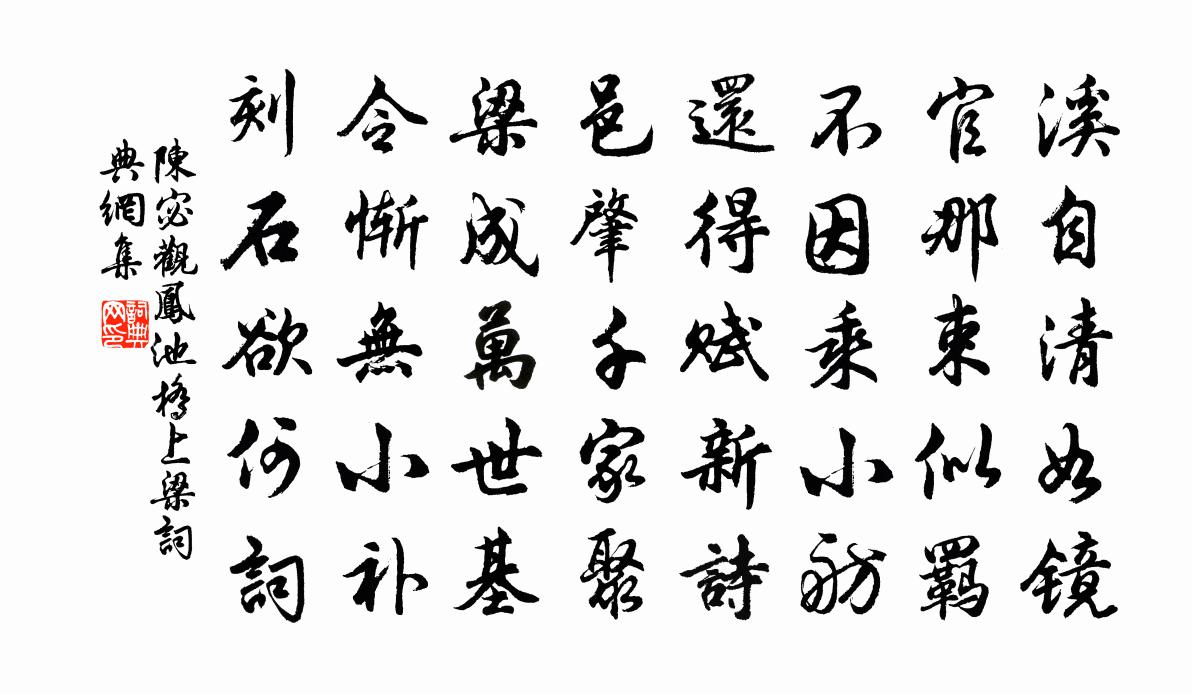 溪自清如鏡
官那束似羈
不因乘小舫
還得賦新詩
邑肇千家聚
梁成萬世基
令慚無小补
刻石欲何詞
陳宓觀鳳池橋上梁詞
典網集
詞典网印